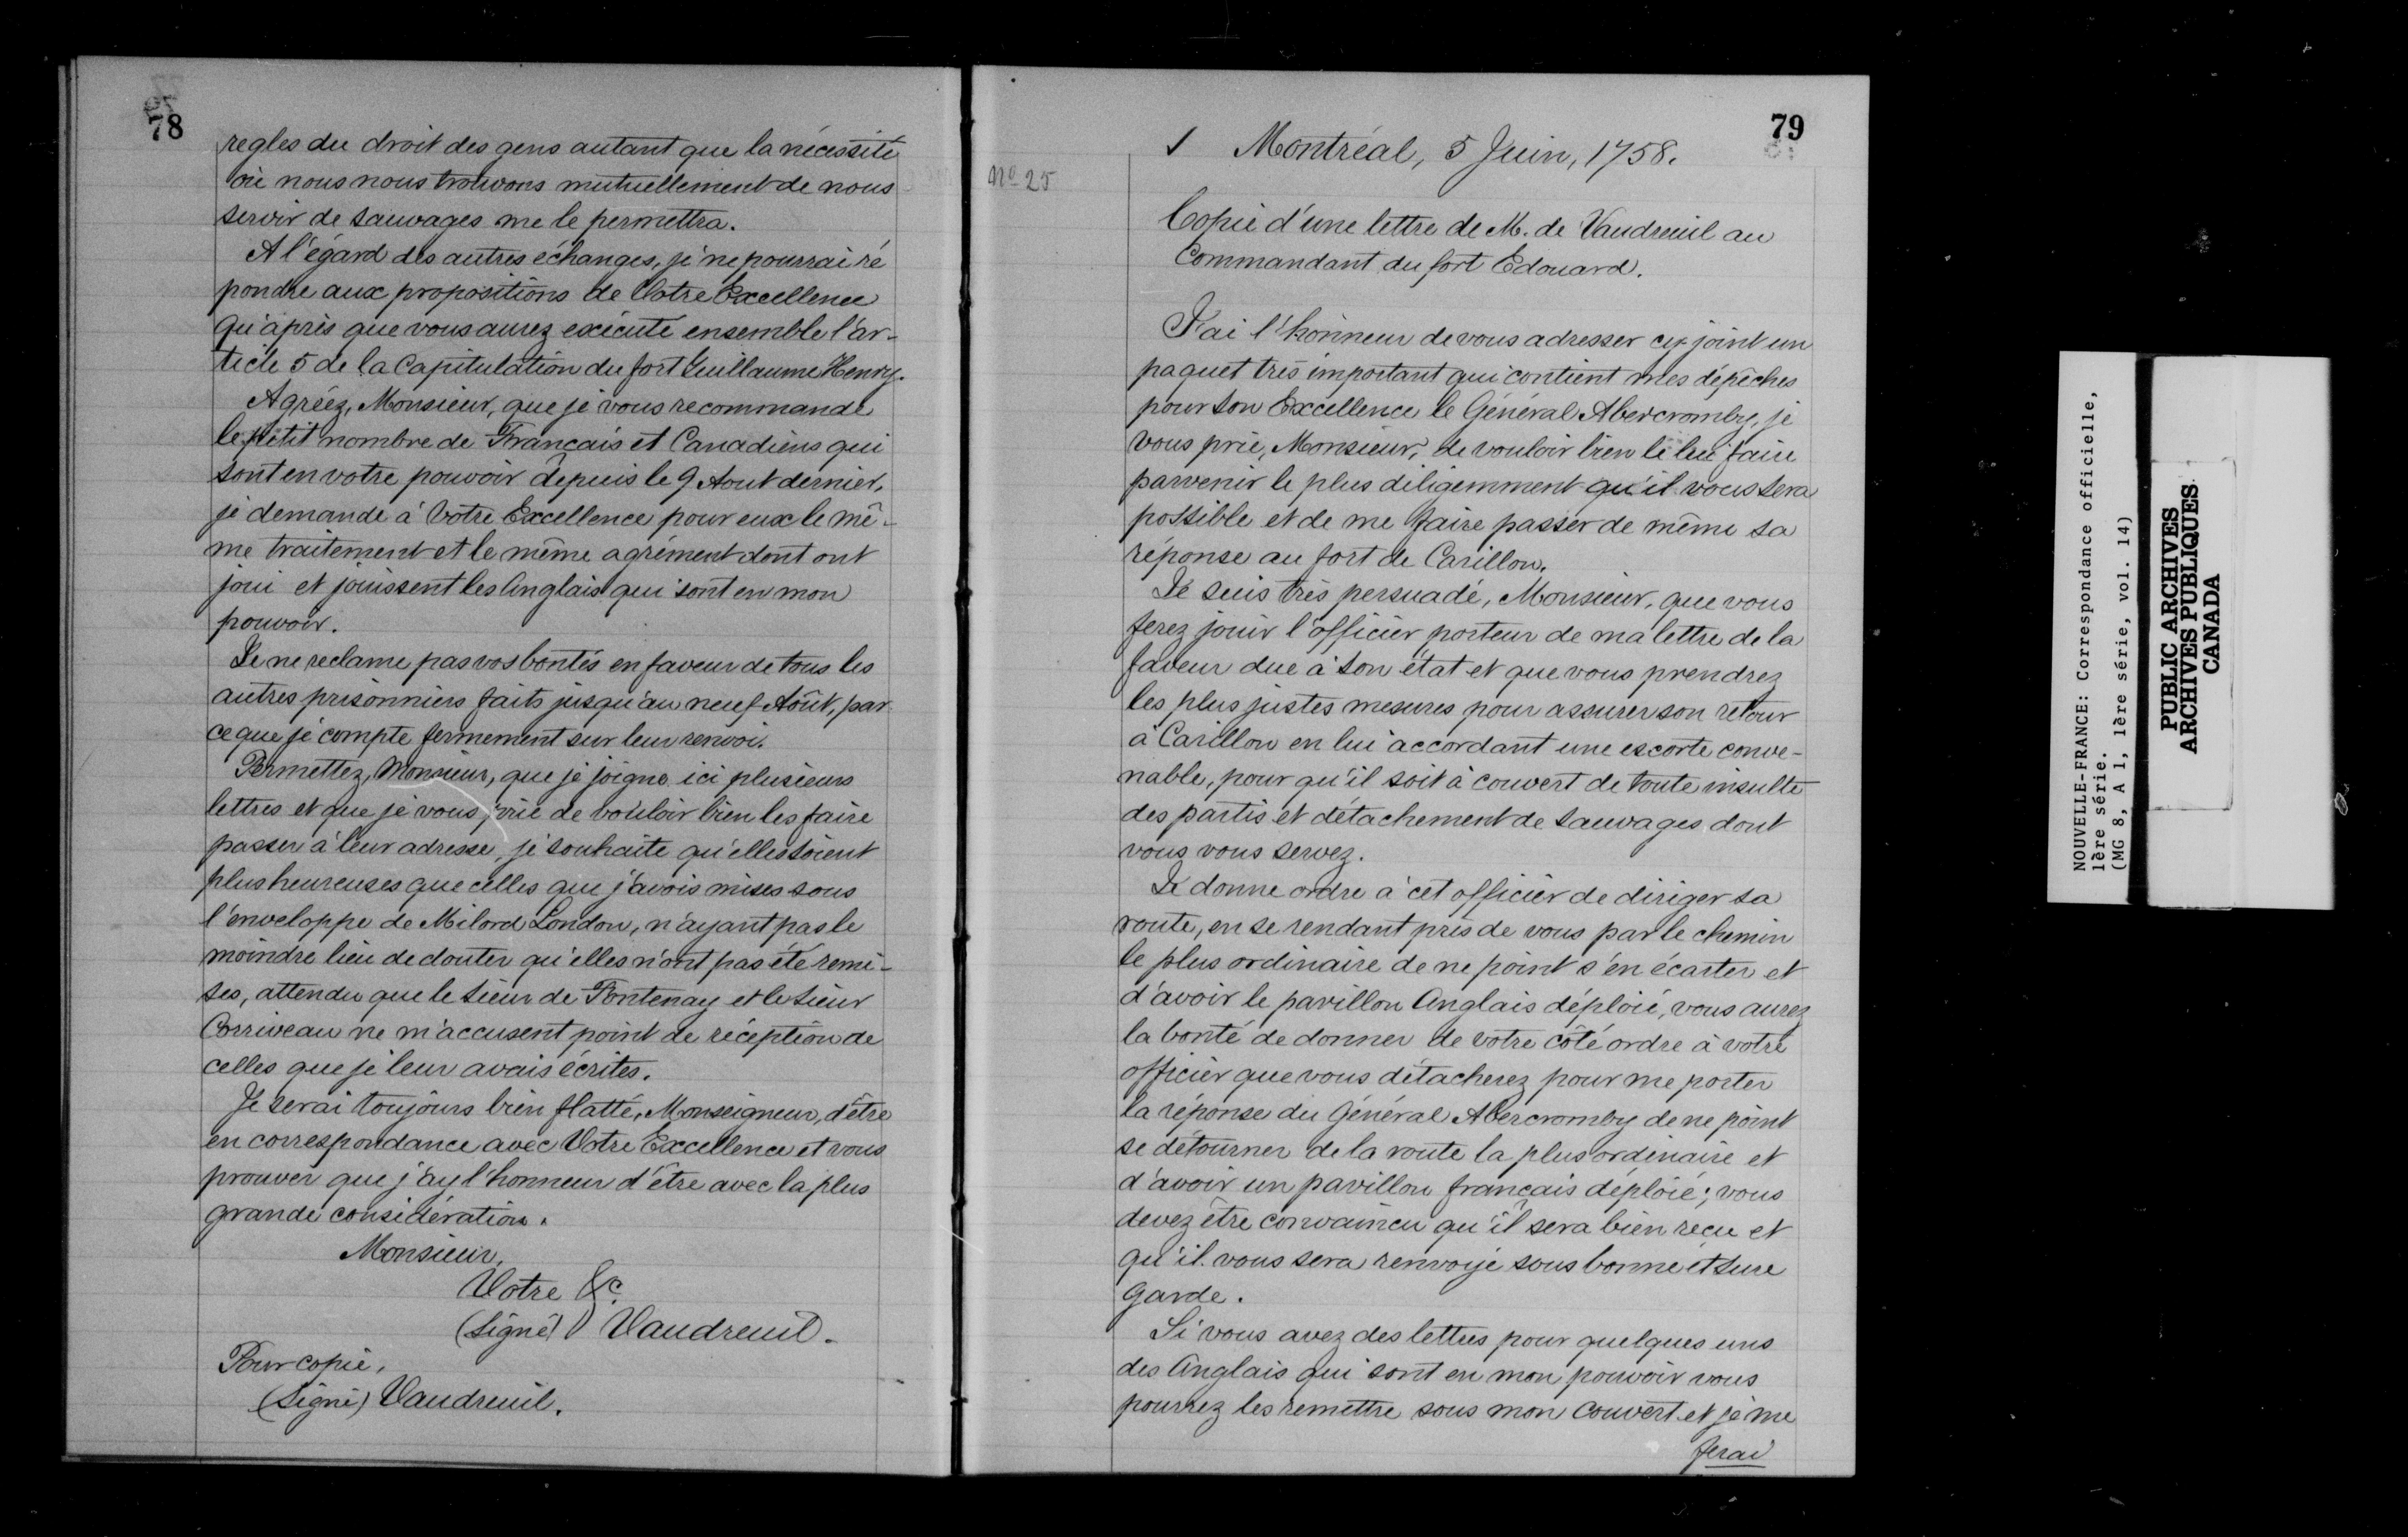 78
regles du droit des gens autant que la nécessité
où nous nous trouvons mutuellement de nous
servir de sauvages me le permettra.
A l'égard des autres échanges, je ne pourrai ré
pondre aux propositions de Votre Excellence
qu'après que vous aurez exécuté ensemble l'ar-
ticle 5 de la Capitulation du fort Guillaume Henry.
Agréez, Monsieur, que je vous recommande
le petit nombre de Français et Canadiens qui
sont en votre pouvoir depuis le 9 Aout dernier,
je demande à Votre Excellence pour eux le mê-
me traitement et le même agrément dont ont
joui et jouissent les Anglais qui sont en mon
pouvoir.
Je ne reclame pas vos bontés en faveur de tous les
autres prisonniers faits jusqu'au neuf Août, par
ce que je compte fermement sur leur renvoi.
Permettez, Monsieur, que je joigne ici plusieurs
lettres et que je vous prie de vouloir bien les faire
passer à leur adresse, je souhaite qu'elles soient
plus heureuses que celles que j'avois mises sous
l'enveloppe de Milord London, n'ayant pas le
moindre lieu de douter qu'elles n'ont pas été remi-
ses, attendu que le sieur de Fontenay et le sieur
Corriveau ne m'accusent point de réception de
celles que je leur avais écrites.
Je serai toujours bien flatté, Monseigneur, d'être
en correspondance avec Votre Excellence et vous
prouver que j'ay l'honneur d'être avec la plus
grande considération.
Monsieur,
Votre &c.
(Signé) Vaudreuil.
Pour copie,
(Signé) Vaudreuil.
79
Montréal, 5 Juin, 1758.
No 25
Copie d'une lettre de M. de Vaudreuil au
Commandant du fort Edouard.
J'ai l'honneur de vous adresser cy joint un
paquet très important qui contient mes dépêches
pour son Excellence le Général Abercromby, je
vous prie, Monsieur, de vouloir bien le lui faire
parvenir le plus diligemment qu'il vous sera
possible et de me faire passer de même sa
réponse au fort de Carillon.
Je suis très persuadé, Monsieur, que vous
ferez jouir l'officier porteur de ma lettre de la
faveur due à son état et que vous prendrez
les plus justes mesures pour assurer son retour
à Carillon en lui accordant une escorte conve-
nable, pour qu'il soit à couvert de toute insulte
des partis et détachement de sauvages dont
vous vous servez.
Je donne ordre à cet officier de diriger sa
route, en se rendant près de vous par le chemin
le plus ordinaire de ne point s'en écarter et
d'avoir le pavillon Anglais déploié, vous aurez
la bonté de donner de votre côté ordre à votre
officier que vous détacherez pour me porter
la réponse du Général Abercromby de ne point
se détourner de la route la plus ordinaire et
d'avoir un pavillon français déploié; vous
devez être convaincu qu'il sera bien reçu et
qu'il vous sera renvoyé sous bonne et sure
garde.
Si vous avez des lettres pour quelques uns
des Anglais qui sont en mon pouvoir vous
pourrez les remettre sous mon couvert et je me
ferai
NOUVELLE-FRANCE: Correspondance officielle,
1ère série.
(MG 8, A 1, 1ère série, vol. 14)
PUBLIC ARCHIVES
ARCHIVES PUBLIQUES
CANADA